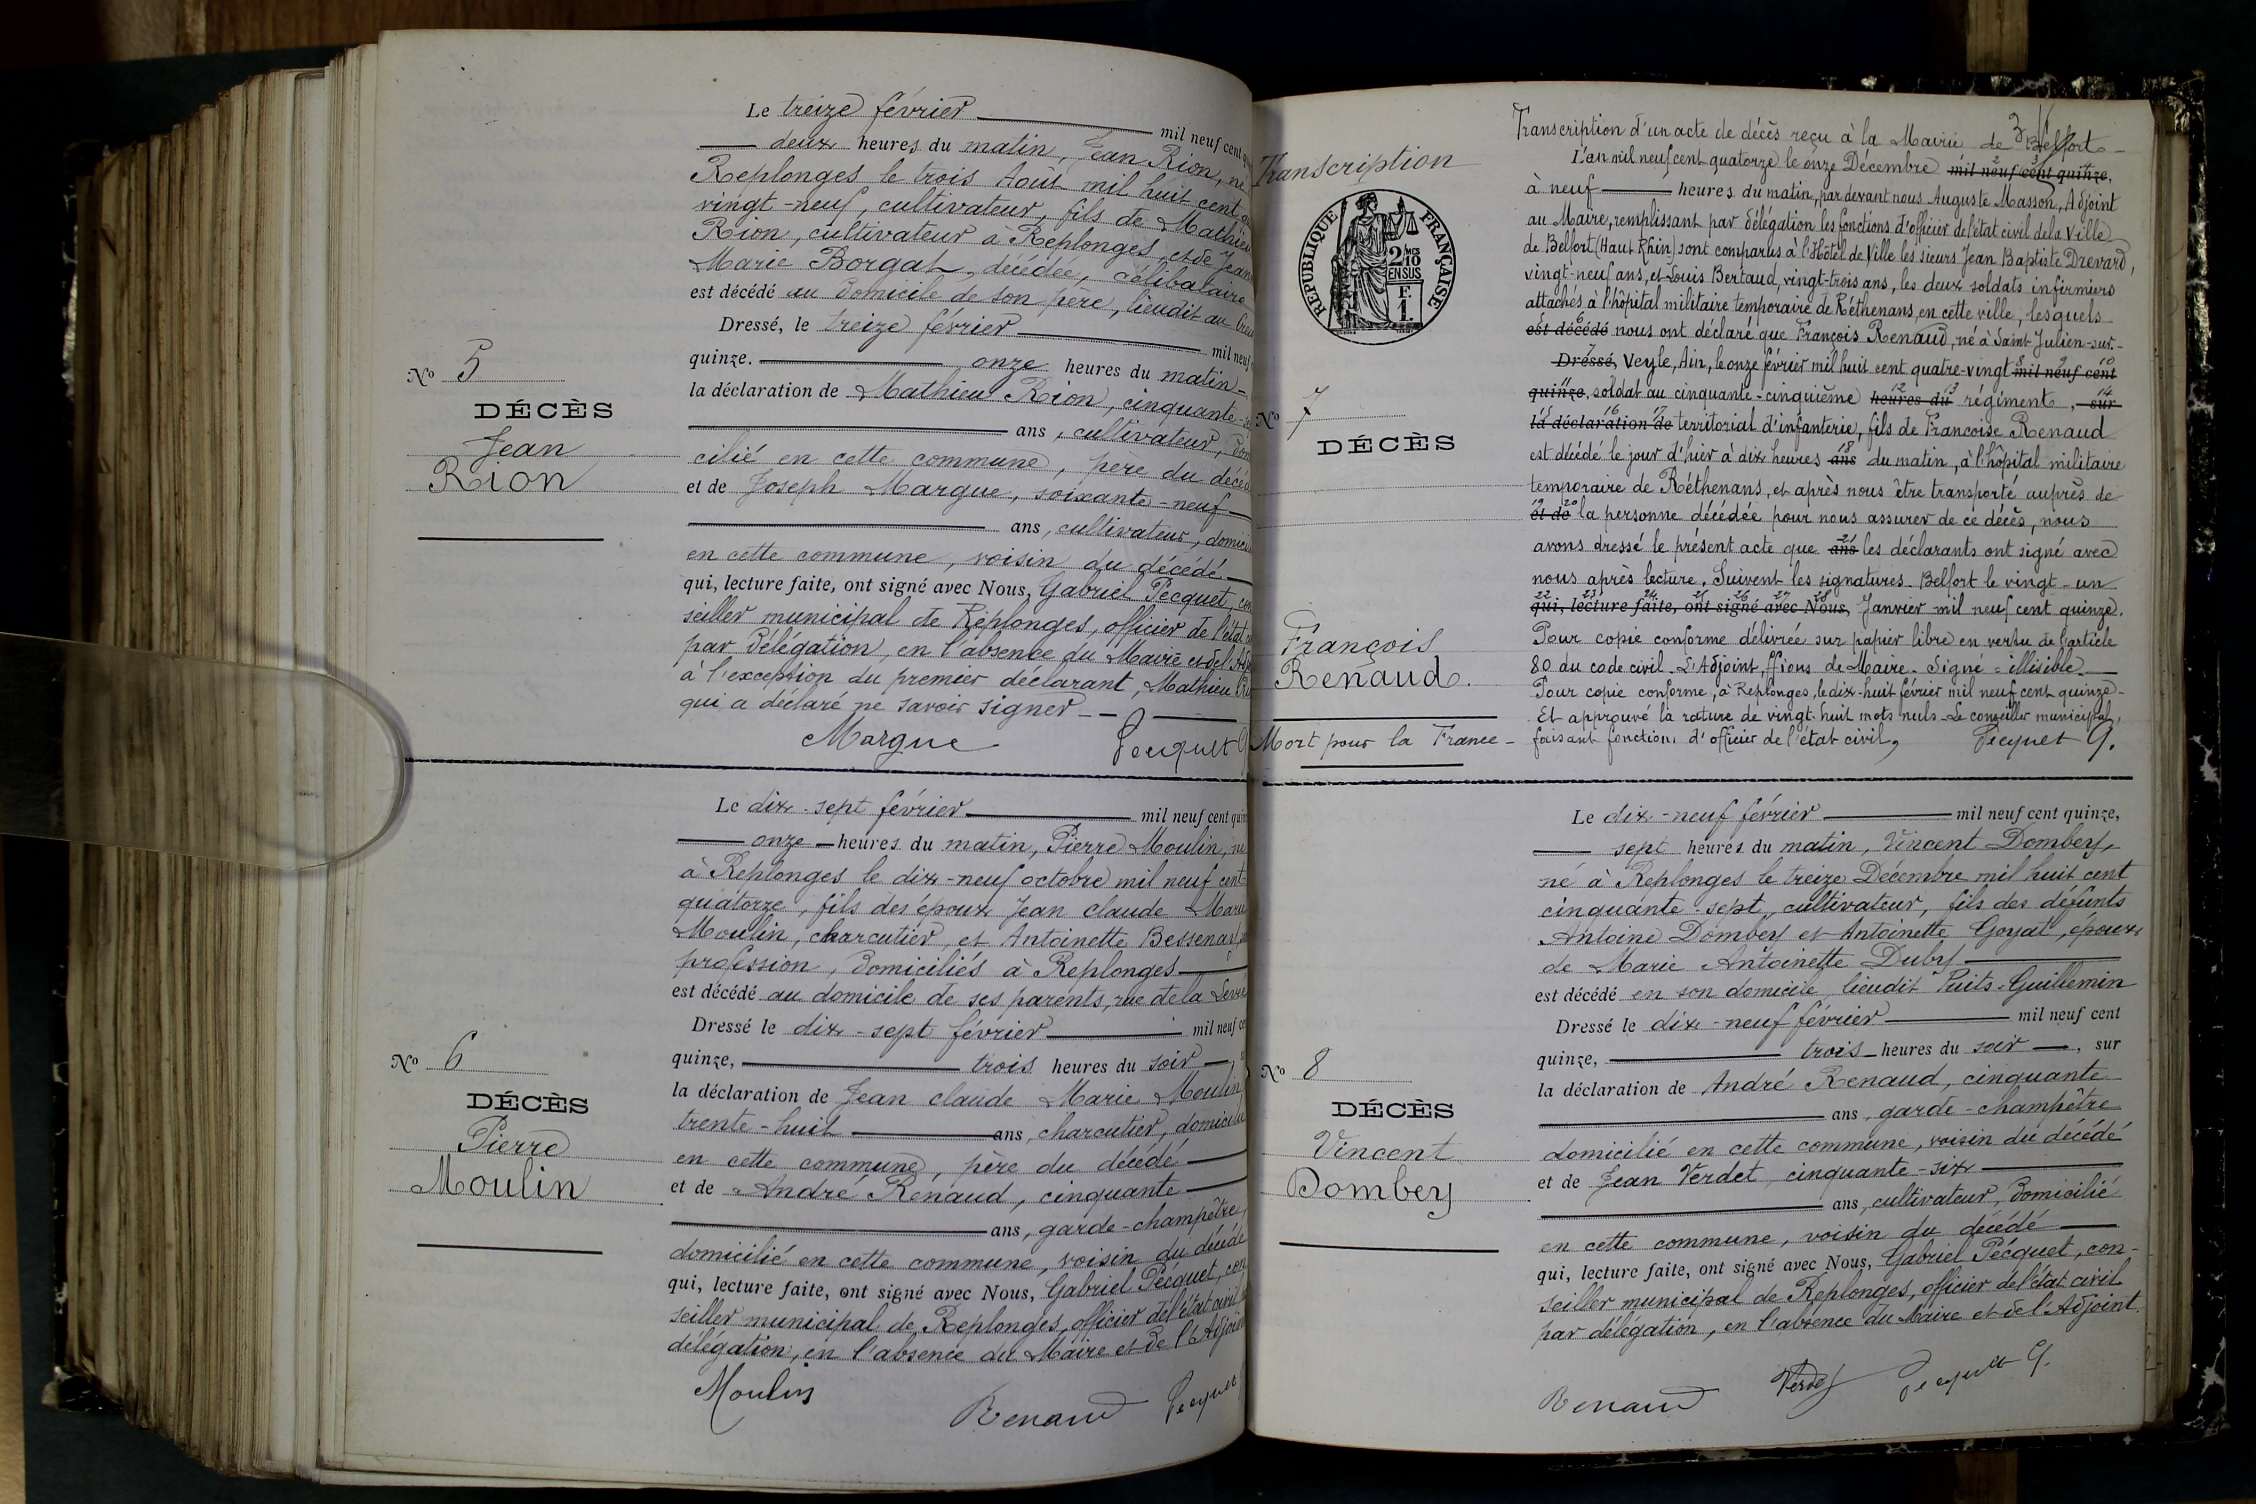 Le treize février mil neuf cent
deux heures du matin, Jean Rion, né
Replonges le trois Août mil huit cent
vingt-neuf, cultivateur, fils de Mathieu
Rion, cultivateur à Replonges, et de Jeanne
Marie Borgat, décédée, célibataire
est décédé au domicile de son père, lieudit au
Dressé, le treize février mil neuf
quinze. onze heures du matin
la déclaration de Mathieu Rion, cinquante-
ans, cultivateur, domi
cilié en cette commune, père du décédé
et de Joseph Margue, soixante-neuf
ans, cultivateur, domici
en cette commune, voisin du décédé
qui, lecture faite, ont signé avec Nous, Gabriel Pecquet, con
seiller municipal de Replonges, officier de l'état
par délégation, en l'absence du Maire et de l'Ad
à l'exception du premier déclarant, Mathieu
qui a déclaré ne savoir signer
Margue Pecquet G
No 5
DÉCÈS
Jean
Rion
Le dix-sept février mil neuf cent quin
onze heures du matin, Pierre Moulin, né
à Replonges le dix-neuf octobre mil neuf cent
quatorze, fils des époux Jean Claude Marie
Moulin, charcutier, et Antoinette Bessenay,
profession, domiciliés à Replonges
est décédé au domicile de ses parents, rue de la
Dressé le dix-sept février mil neuf ce
quinze, trois heures du soir
la déclaration de Jean Claude Marie Moulin
trente-huit ans, charcutier, domicilié
en cette commune, père du décédé
et de André Renaud, cinquante
ans, garde-champêtre,
domicilié en cette commune, voisin du décédé
qui, lecture faite, ont signé avec Nous, Gabriel Pecquet, con
seiller municipal de Replonges, officier de l'état civil
délégation, en l'absence du Maire et de l'Adjoint
Moulin Renaud Pecquet
No 6
DÉCÈS
Pierre
Moulin
3
Transcription
RÉPUBLIQUE FRANÇAISE
2/10 EN SUS
F. 1.
Transcription d'un acte de décès reçu à la Mairie de Belfort
L'an mil neuf cent quatorze le onze Décembre mil neuf cent quinze,
à neuf heures du matin, par devant nous Auguste Masson, Adjoint
au Maire, remplissant par délégation les fonctions d'officier de l'état civil de la Ville
de Belfort (Haut Rhin) sont comparus à l'Hôtel de Ville les sieurs Jean Baptiste Drevard,
vingt-neuf ans, et Louis Bertaud, vingt-trois ans, les deux soldats infirmiers
attachés à l'hôpital militaire temporaire de Réthenans, en cette ville, lesquels
est décédé nous ont déclaré que François Renaud, né à Saint-Julien-sur-
Dressé, Veyle, Ain, le onze février mil huit cent quatre-vingt mil neuf cent
quinze, soldat au cinquante-cinquième heures du régiment, sur
la déclaration de territorial d'infanterie, fils de Francoise Renaud
est décédé le jour d'hier à dix heures ans du matin, à l'hôpital militaire
temporaire de Réthenans, et après nous être transporté auprès de
et de la personne décédée pour nous assurer de ce décès, nous
avons dressé le présent acte que ans les déclarants ont signé avec
nous après lecture. Suivent les signatures. Belfort le vingt-un
qui, lecture faite, ont signé avec Nous, Janvier mil neuf cent quinze.
Pour copie conforme délivrée sur papier libre en vertu de l'article
80 du code civil. L'Adjoint, ffions de Maire. Signé = illisible.
Pour copie conforme, à Replonges, le dix-huit février mil neuf cent quinze
Et approuvé la rature de vingt-huit mots nuls. Le conseiller municipal,
faisant fonction d'officier de l'état civil, Pecquet G.
No 7
DÉCÈS
François
Renaud.
Mort pour la France
Le dix-neuf février mil neuf cent quinze,
sept heures du matin, Vincent Dombey,
né à Replonges le treize Décembre mil huit cent
cinquante-sept, cultivateur, fils des défunts
Antoine Dombey et Antoinette Goyat, époux
de Marie Antoinette Duby
est décédé en son domicile lieudit Puits-Guillemin
Dressé le dix-neuf février mil neuf cent
quinze, trois heures du soir, sur
la déclaration de André Renaud, cinquante
ans, garde-champêtre
domicilié en cette commune, voisin du décédé
et de Jean Verdet, cinquante-six
ans, cultivateur, domicilié
en cette commune, voisin du décédé
qui, lecture faite, ont signé avec Nous, Gabriel Pecquet, con-
seiller municipal de Replonges, officier de l'état civil
par délégation, en l'absence du Maire et de l'Adjoint.
Renaud Verdet Pecquet G.
No 8
DÉCÈS
Vincent
Dombey